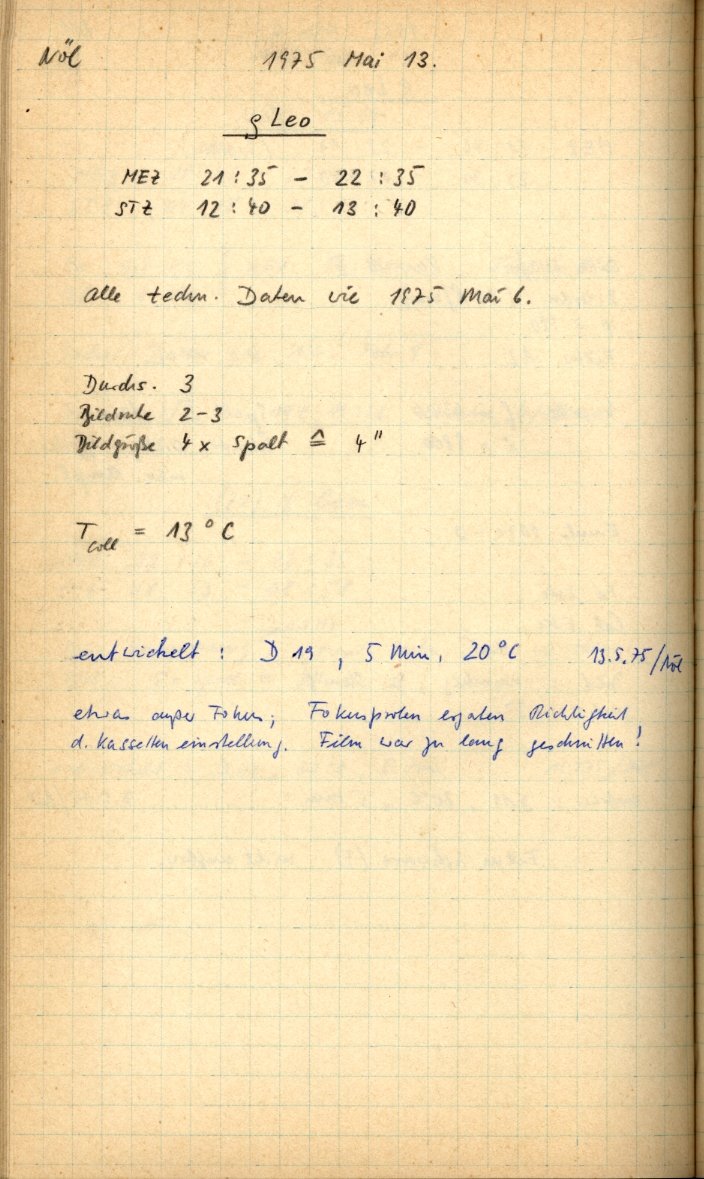 Nöl 1975 Mai 13.
ρ Leo
MEZ 21:35 - 22:35
STZ 12:40 - 13:40
Alle techn. Daten wie 1975 Mai 6.
Durchs. 3
Bildruhe 2-3
Bildgröße 4 x Spalt ≙ 4"
T_coll = 13°C
entwickelt: D 19, 5 Min, 20°C 13.5.75/Nöl
etwas außer Fokus; Fokusproben ergaben Richtigkeit
d. Kassetteneinstellung. Film war zu lang geschnitten!